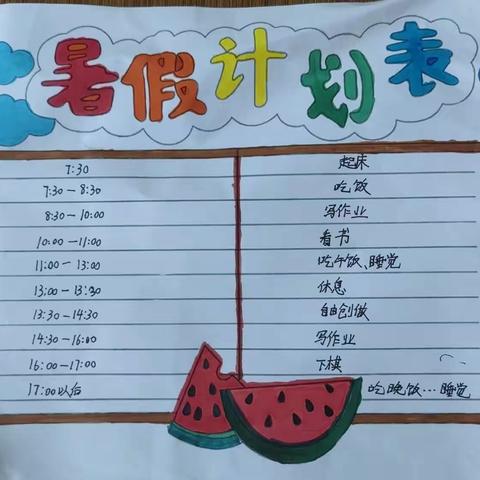 暑假计划表
7:30 起床
7:30-8:30 吃饭
8:30-10:00 写作业
10:00-11:00 看书
11:00-13:00 吃午饭、睡觉
13:00-13:30 休息
13:30-14:30 自由创做
14:30-16:00 写作业
16:00-17:00 下棋
17:00以后 吃晚饭…睡觉